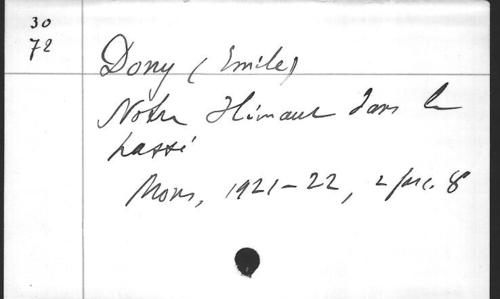 30
72
Dony (Emile)
Notre Hainaut dans le
passé
Mons, 1921-22, 2 fasc. 8